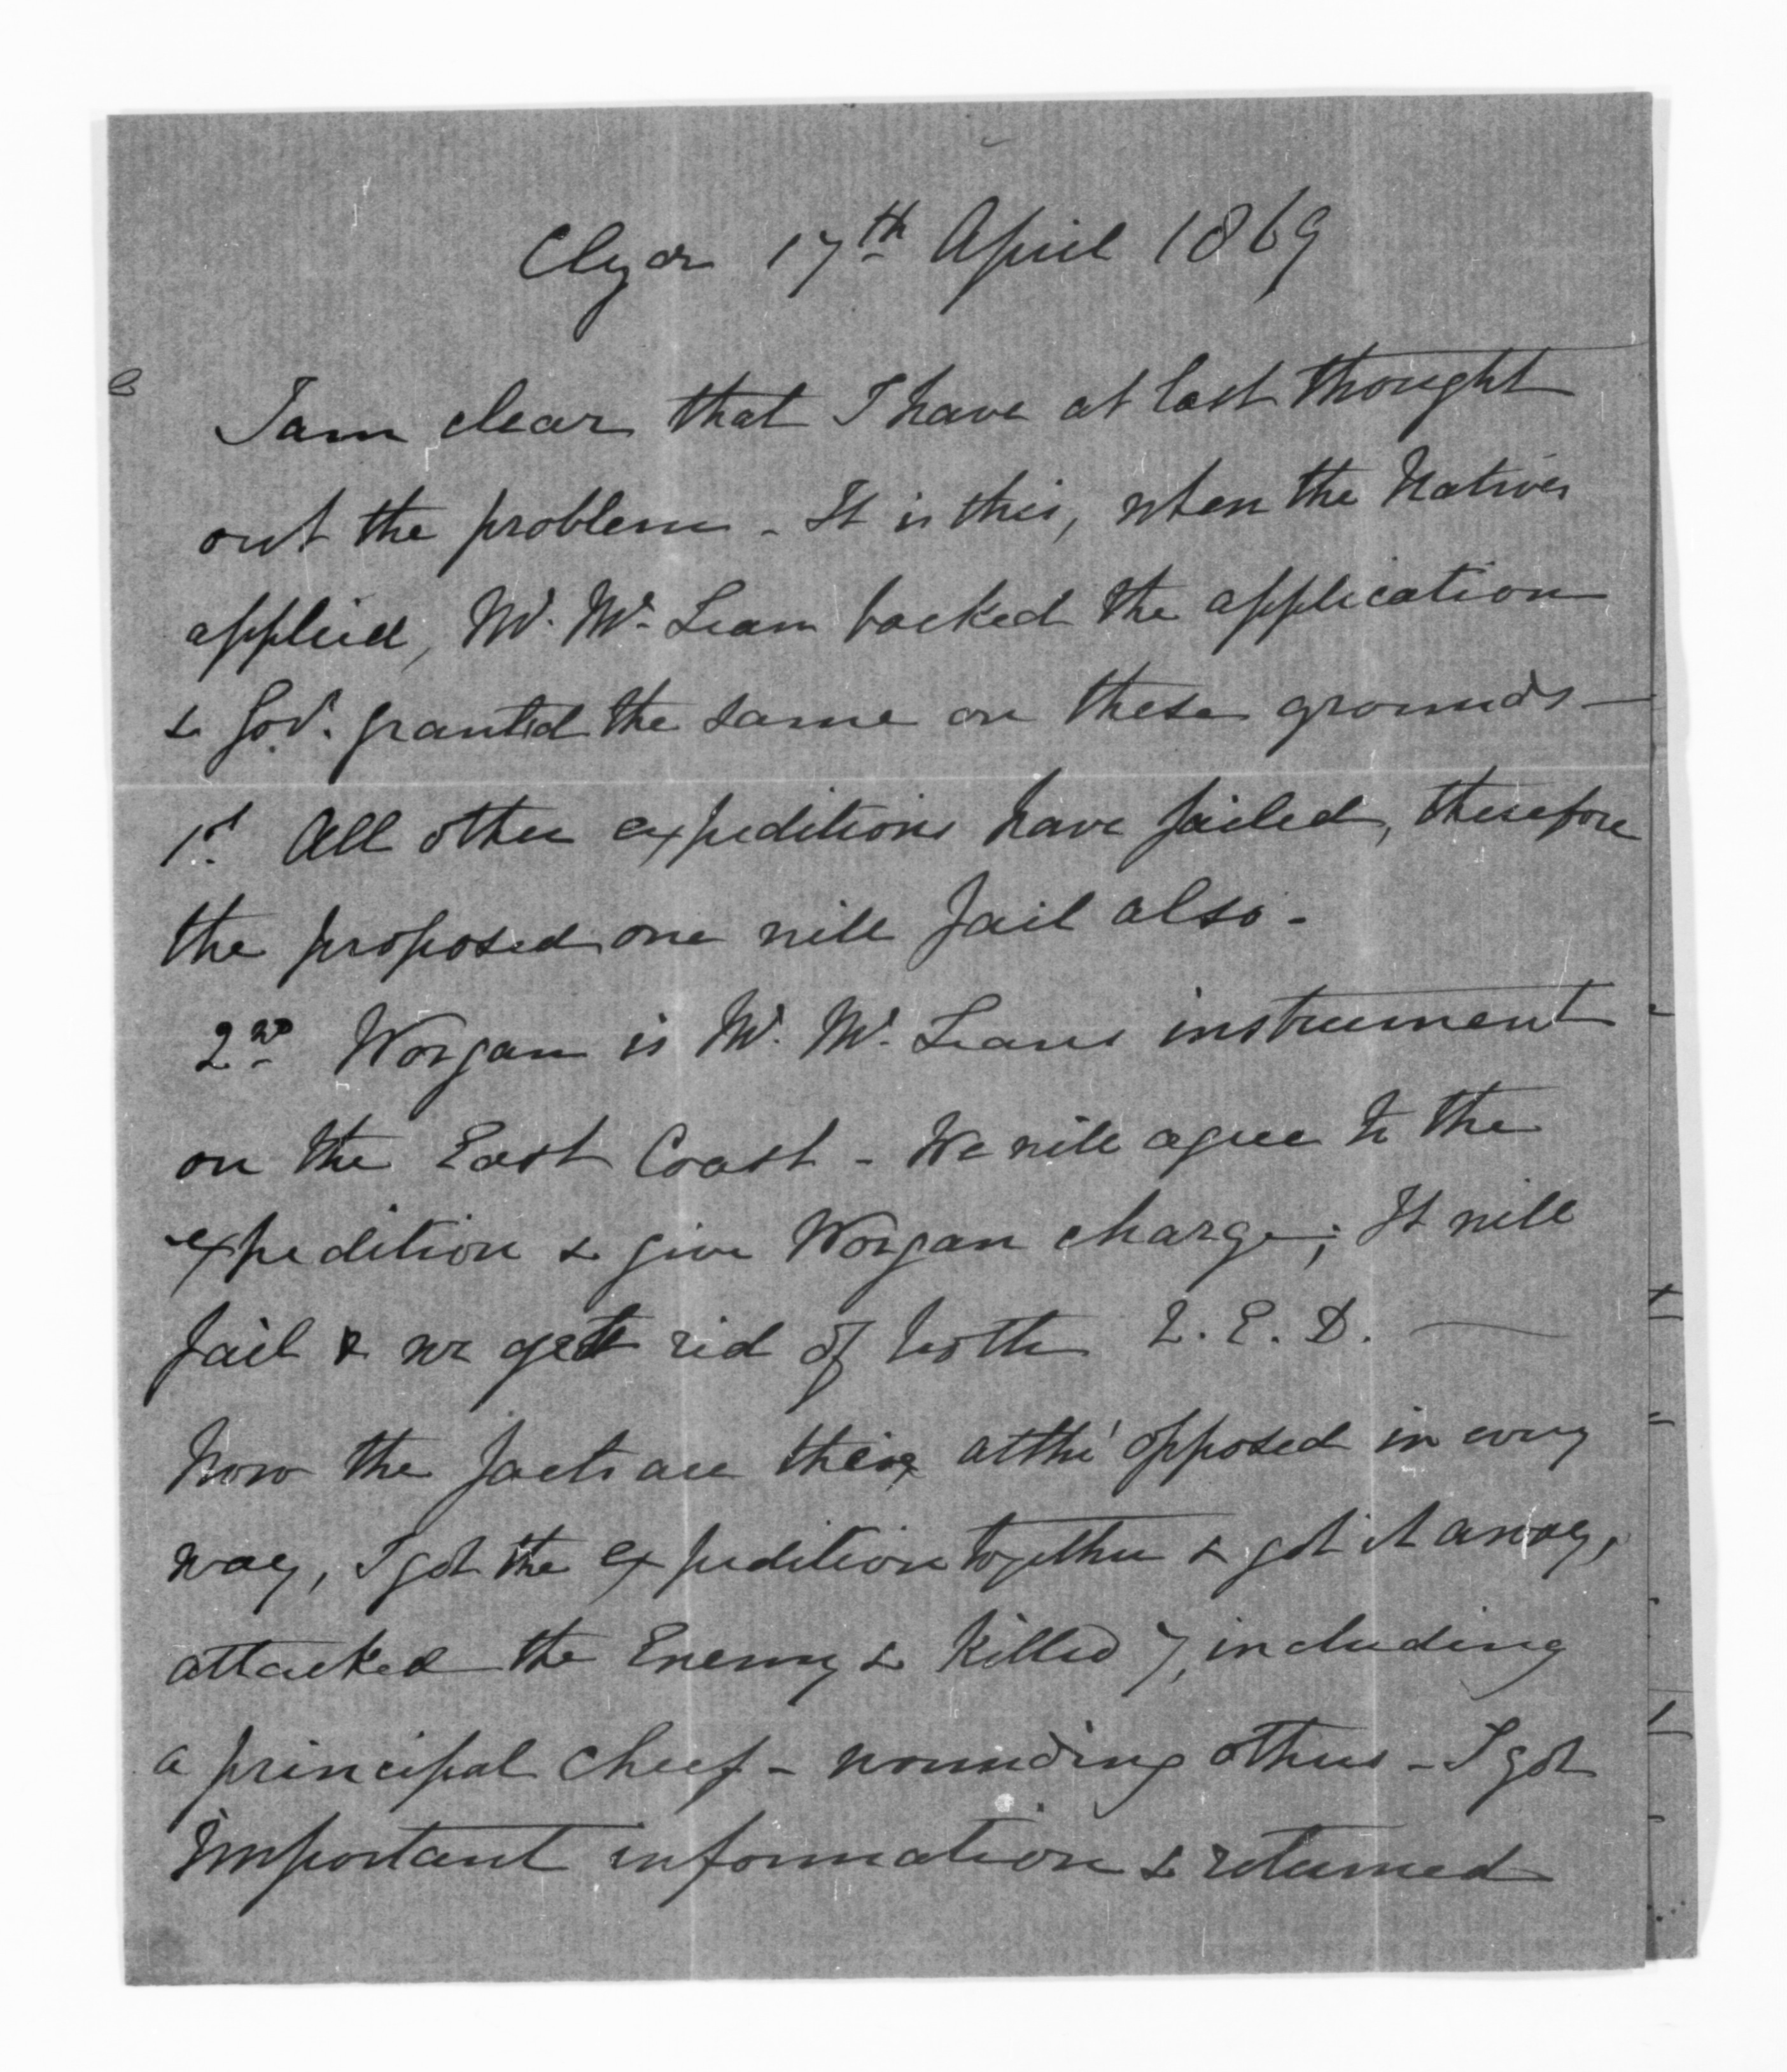 Clyde 17th April 1869
I am clear that I have at last thought
out the problem - It is this, when the Natives
applied, Mr. McLean backed the application
& Govt. granted the same on these grounds -
1st All other expeditions have failed, therefore
the proposed one will fail also -
2nd Worgan is Mr. McLeans instrument
on the East Coast - We will agree to the
expedition & give Worgan charge; It will
fail & we get rid of both Q.E.D. -
Now the facts are these, altho' opposed in every
way, I got the expedition together & got it away,
attacked the Enemy & killed 7, including
a principal chief - wounding others - I got
important information & returned